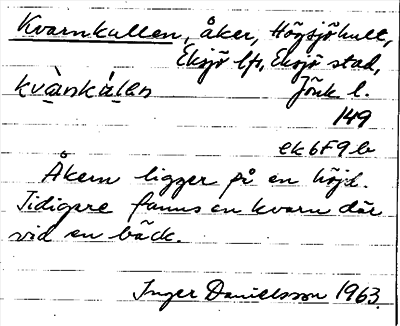 Kvarnkullen, åker, Högsjöhult,
Eksjö lfs, Eksjö stad,
kvànkálen Jönk l.
149
ek 6F9b
Åkern ligger på en höjd.
Tidigare fanns en kvarn där
vid en bäck.
Inger Danielsson 1963.